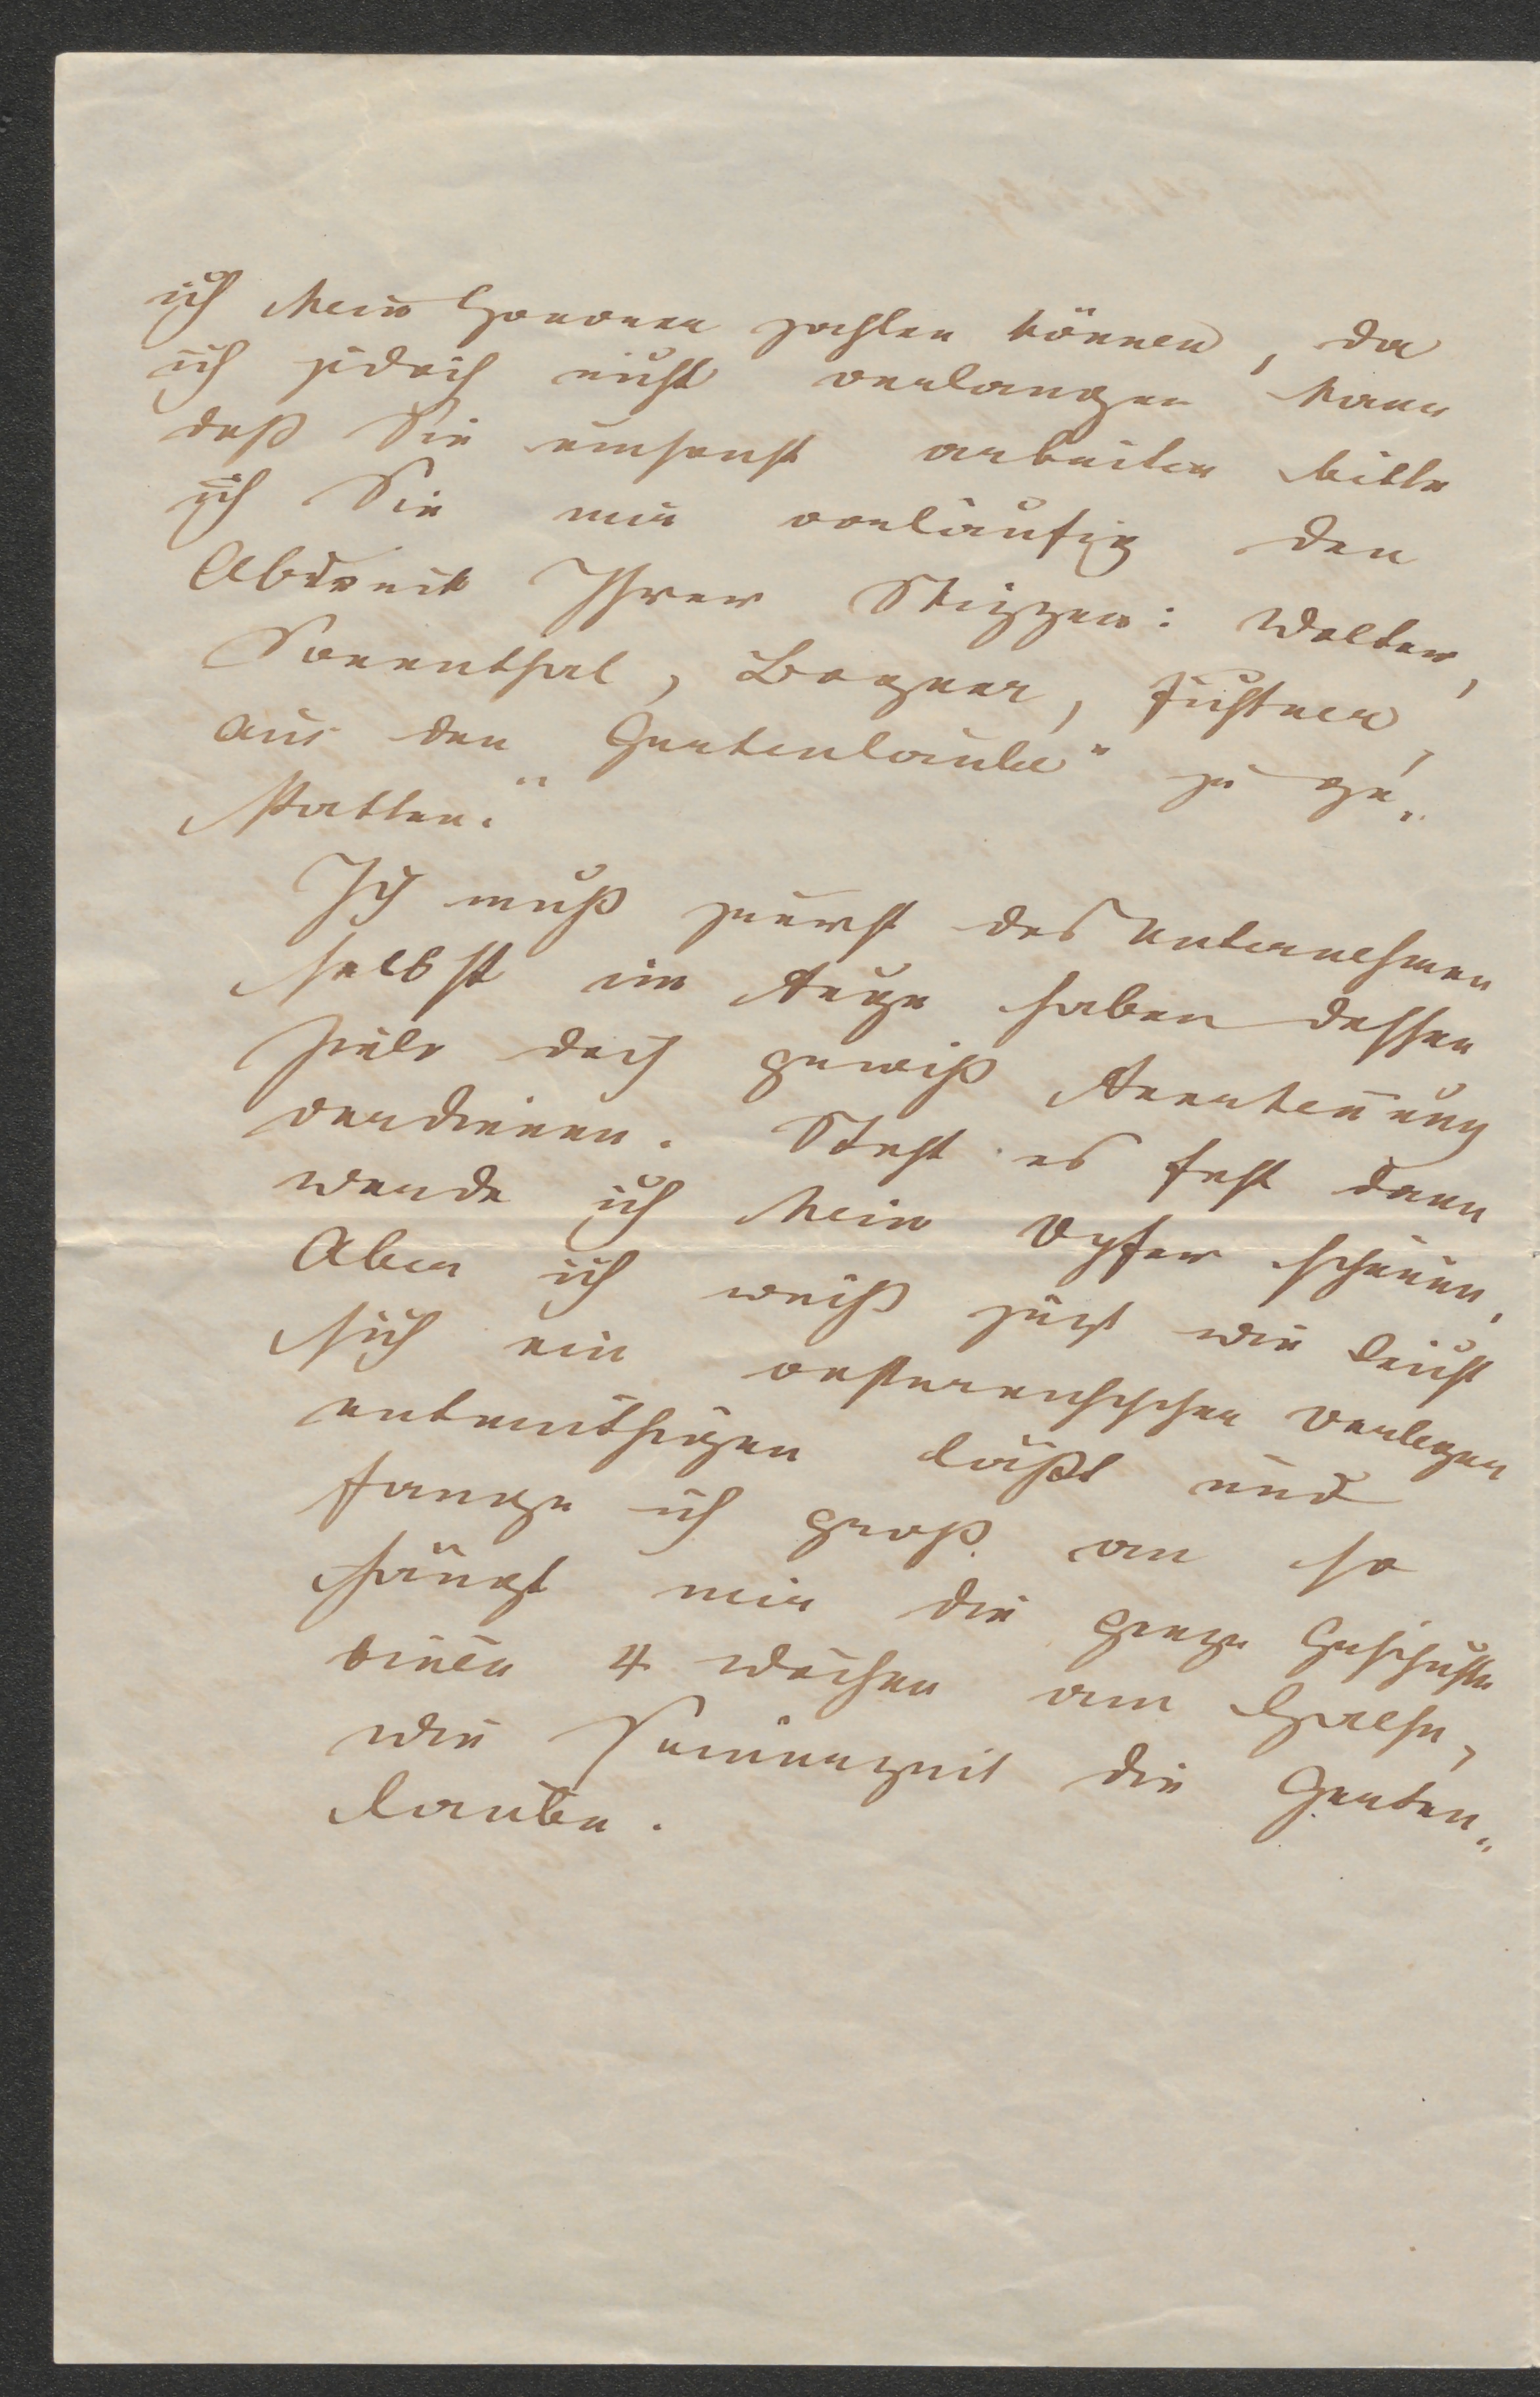 ich kein Honorar zahlen können, da
ich jedoch nicht verlangen kann
daß Sie umsonst arbeiten bitte
ich Sie mir vorläufig den
Abdruck Ihrer Skizzen: Wolter,
Sonenthal, Bogner, Fichtner,
aus der „Gartenlaube" zu ge„
statten.
Ich muß zuerst das Unternehmen
selbst im Auge haben dessen
Ziele doch gewiß Anerkenūng
verdienen. Steht es fest dann
werde ich kein Opfer scheuen,
Aber ich weiß jetzt wie leicht
sich ein oesterreichischer Verleger
entmuthigen läßt und
fange ich groß an so
hängt mir die ganze Geschichte
binēn 4 Wochen am Halse,
wie Seinerzeit die Garten„
laube.